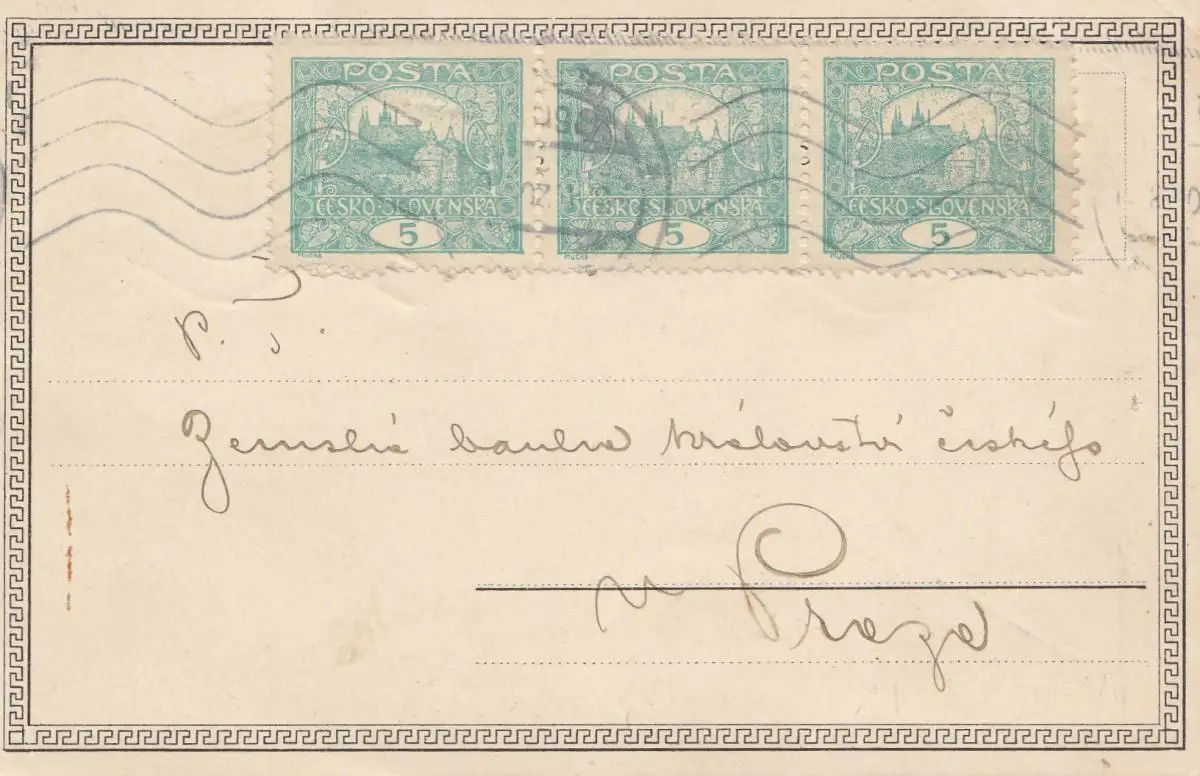 POSTA POSTA POSTA
ČESKO-SLOVENSKÁ ČESKO-SLOVENSKÁ ČESKO-SLOVENSKÁ
5 5 5
MUCHA MUCHA MUCHA
P.
Zemská banka království českého
v Praze